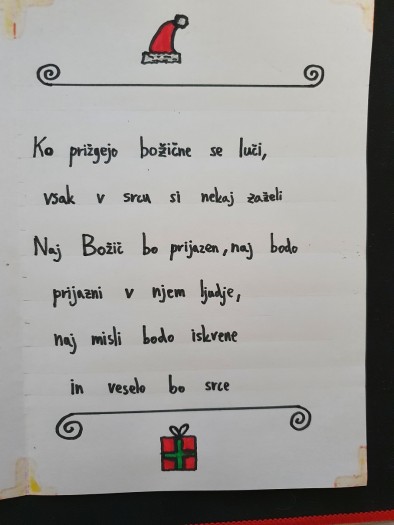 Ko prižgejo božične se luči,
vsak v srcu si nekaj zaželi
Naj Božič bo prijazen, naj bodo
prijazni v njem ljudje,
naj misli bodo iskrene
in veselo bo srce